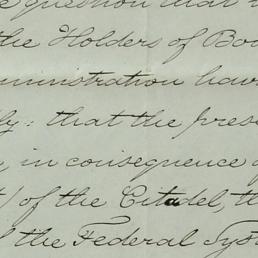 question that
the Holders of Bo
ministration hav
ly: that the pres
in consequence
of the Citadel, th
the Federal Sys